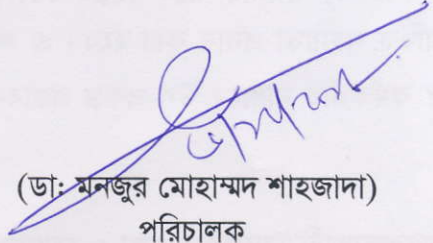 (ডা: মনজুর মোহাম্মদ শাহজাদা)
পরিচালক